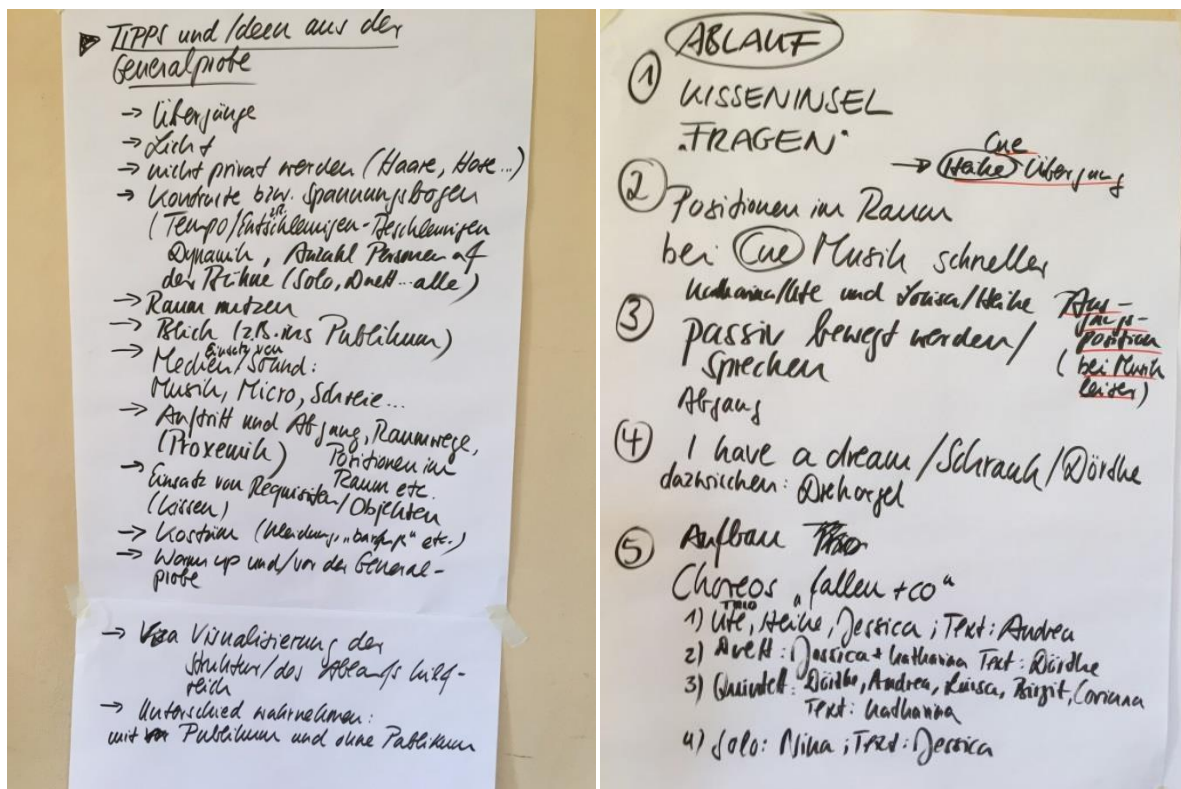 ► TIPPS und Ideen aus der
Generalprobe
→ Übergänge
→ Licht
→ nicht privat werden (Haare, Hose...)
→ Kontraste bzw. Spannungsbogen
(Tempo/Entschleunigen-Beschleunigen
Dynamik, Anzahl Personen auf
der Bühne (Solo, Duett...alle)
→ Raum nutzen
→ Blick (z.B. ins Publikum)
→ Einsatz von Medien/Sound:
Musik, Micro, Schreie...
→ Auftritt und Abgang, Raumwege,
(Proxemik) Positionen im
Raum etc.
→ Einsatz von Requisiten/Objekten
(Kissen)
→ Kostüm (Kleidung, „barfuß“ etc.)
→ Warm up und/vor der General-
probe
→ Visualisierung der
Struktur/des Ablaufs hilf-
reich
→ Unterschied wahrnehmen:
mit Publikum und ohne Publikum
ABLAUF
① KISSENINSEL
„FRAGEN“
Cue
→ Heike Übergang
② Positionen im Raum
bei Cue Musik schneller
Katharina/Ute und Louisa/Heike
③ passiv bewegt werden/
sprechen
Abgang
Aus-
gangs-
position
(bei Musik
leiser)
④ I have a dream/Schrank/Dördke
dazwischen: Drehorgel
⑤ Aufbau
Choreos „fallen + co“
1) Trio Ute, Heike, Jessica; Text: Andrea
2) Duett: Jessica + Katharina Text: Dördke
3) Quintett: Dördke, Andrea, Luisa, Birgit, Corinna
Text: Katharina
4) Solo: Nina; Text: Jessica